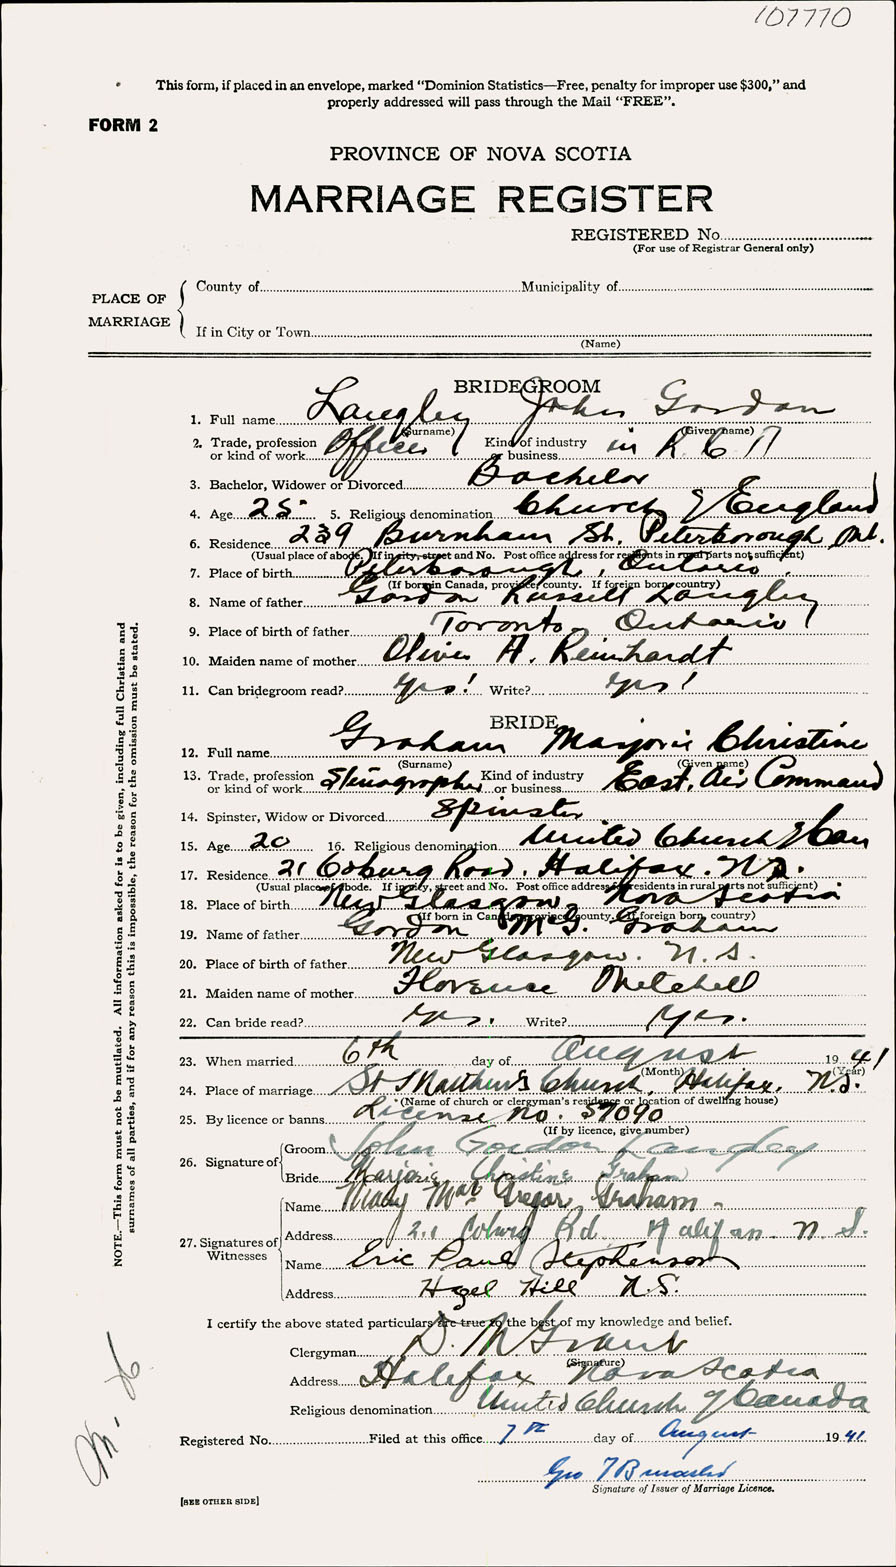 107770
This form, if placed in an envelope, marked “Dominion Statistics—Free, penalty for improper use $300,” and
properly addressed will pass through the Mail “FREE”.
FORM 2
PROVINCE OF NOVA SCOTIA
MARRIAGE REGISTER
REGISTERED No.
(For use of Registrar General only)
PLACE OF MARRIAGE
County of Municipality of
If in City or Town
(Name)
BRIDEGROOM
1. Full name Langley John Gordon
(Surname) (Given name)
2. Trade, profession or kind of work Officer Kind of industry or business in R C N
3. Bachelor, Widower or Divorced Bachelor
4. Age 25 5. Religious denomination Church of England
6. Residence 239 Burnham St. Peterborough Ont.
(Usual place of abode. If in city, street and No. Post office address for residents in rural parts not sufficient)
7. Place of birth Peterborough, Ontario
(If born in Canada, province, county. If foreign born, country)
8. Name of father Gordon Russell Langley
9. Place of birth of father Toronto, Ontario
10. Maiden name of mother Olive A. Reinhardt
11. Can bridegroom read? yes! Write? yes!
BRIDE
12. Full name Graham Marjorie Christine
(Surname) (Given name)
13. Trade, profession or kind of work Stenographer Kind of industry or business East. Air Command
14. Spinster, Widow or Divorced Spinster
15. Age 20 16. Religious denomination United Church of Can
17. Residence 21 Coburg Road. Halifax. N.S.
(Usual place of abode. If in city, street and No. Post office address for residents in rural parts not sufficient)
18. Place of birth New Glasgow, Nova Scotia
(If born in Canada, province, county. If foreign born, country)
19. Name of father Gordon McG. Graham
20. Place of birth of father New Glasgow. N. S.
21. Maiden name of mother Florence Mitchell
22. Can bride read? Yes. Write? Yes.
23. When married 6th day of August 1941
(Month) (Year)
24. Place of marriage St Matthew's Church, Halifax, N.S.
(Name of church or clergyman's residence or location of dwelling house)
25. By licence or banns License No. 57090
(If by licence, give number)
26. Signature of
Groom John Gordon Langley
Bride Marjorie Christine Graham
27. Signatures of Witnesses
Name Mary MacGregor Graham
Address 21 Coburg Rd. Halifax N. S.
Name Eric Paul Stephenson
Address Hazel Hill N.S.
I certify the above stated particulars are true to the best of my knowledge and belief.
Clergyman D. M Grant
(Signature)
Address Halifax Nova Scotia
Religious denomination United Church of Canada
Registered No. Filed at this office 7th day of August 1941
Geo
Signature of Issuer of Marriage Licence.
[SEE OTHER SIDE]
NOTE.—This form must not be mutilated. All information asked for is to be given, including full Christian and
surnames of all parties, and if for any reason this is impossible, the reason for the omission must be stated.